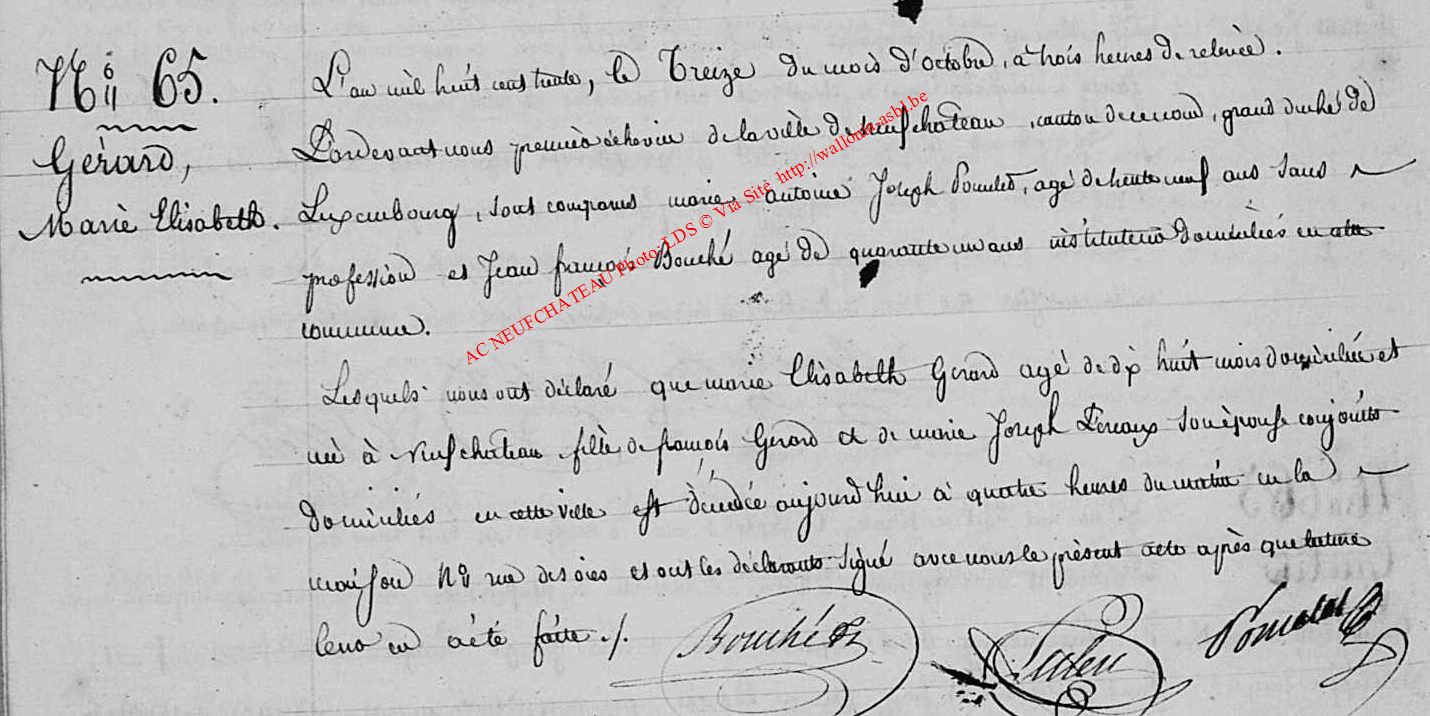 N° 65.
Gérard,
Marie Elisabeth.
L'an mil huit cent trente, le Treize du mois d'octobre, à trois heures de relevée.
Pardevant nous premier échevin de la ville de neufchateau, canton de ce nom, grand duché de
Luxembourg, sont comparus marie antoine Joseph, agé de trente neuf ans sans
profession et Jean françois Bouché agé de quarante un ans instituteur domiciliés en cette
commune.
Lesquels nous ont déclaré que marie Elisabeth Gerard agé de dix huit mois domiciliée et
née à neufchateau fille de françois Gerard et de marie Joseph son épouse conjoints
domiciliés en cette ville est décédée aujourd'hui à quatre heures du matin en la
maison N° rue des oies et ont les déclarants signé avec nous le présent acte après que lecture
leur en a été faite ./.
Bouché
AC NEUFCHATEAU Photo: LDS © Via Site http://wallonia-asbl.be